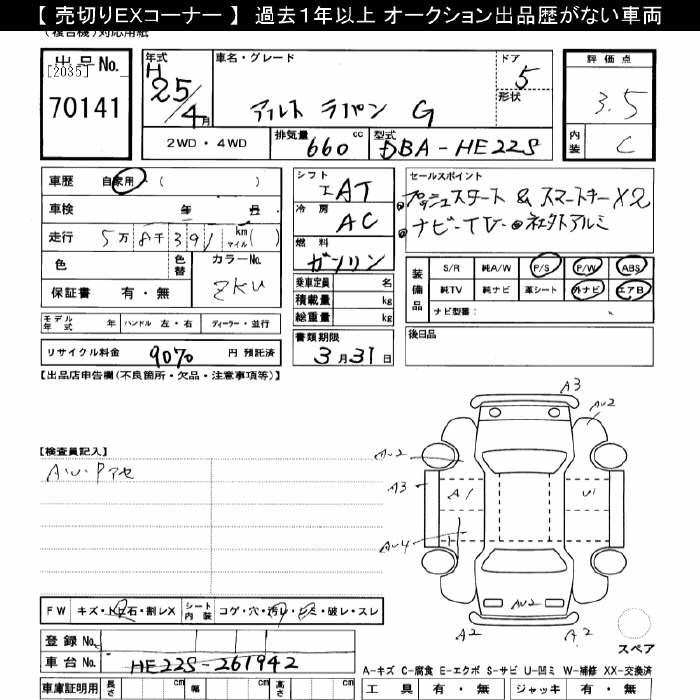 【 売切りEXコーナー 】 過去1年以上 オークション出品歴がない車両
(複合機)対応用紙
出品No.
[2035]
70141
年式 H 25/4月
車名・グレード
アルト ラパン G
ドア 5
形状
2WD・4WD
排気量 660 cc
型式 DBA-HE22S
評価点
3.5
内装 C
車歴 自家用・( )
車検 年 月
走行 5万8千391 km マイル( )
色
色替
カラーNo.
ZKU
保証書 有・無
シフト
AT
冷房
AC
燃料
ガソリン
乗車定員 名
積載量 kg
総重量 kg
書類期限
3月31日
セールスポイント
プッシュスタート & スマートキーX2
ナビ-TV- 社外アルミ
装備品
S/R 純A/W P/S P/W ABS
純TV 純ナビ 革シート 外ナビ エアB
ナビ型番:
後日品
モデル年式 年 ハンドル 左・右 ディーラー・並行
リサイクル料金 9070 円 預託済
【出品店申告欄(不良箇所・欠品・注意事項等)】
【検査員記入】
A・U・Pアセ
A3
AU2
AU2
A3
A1
U1
AU4
AU2
A2
A2
スペア
FW キズ・トビ石・割レX シート内装 コゲ・穴・汚レ・シミ・破レ・スレ
登録No.
車台No. HE22S-261942
A-キズ C-腐食 E-エクボ S-サビ U-凹ミ W-補修 XX-交換済
車庫証明用 長さ cm 幅 cm 高さ cm
工具 有・無 ジャッキ 有・無